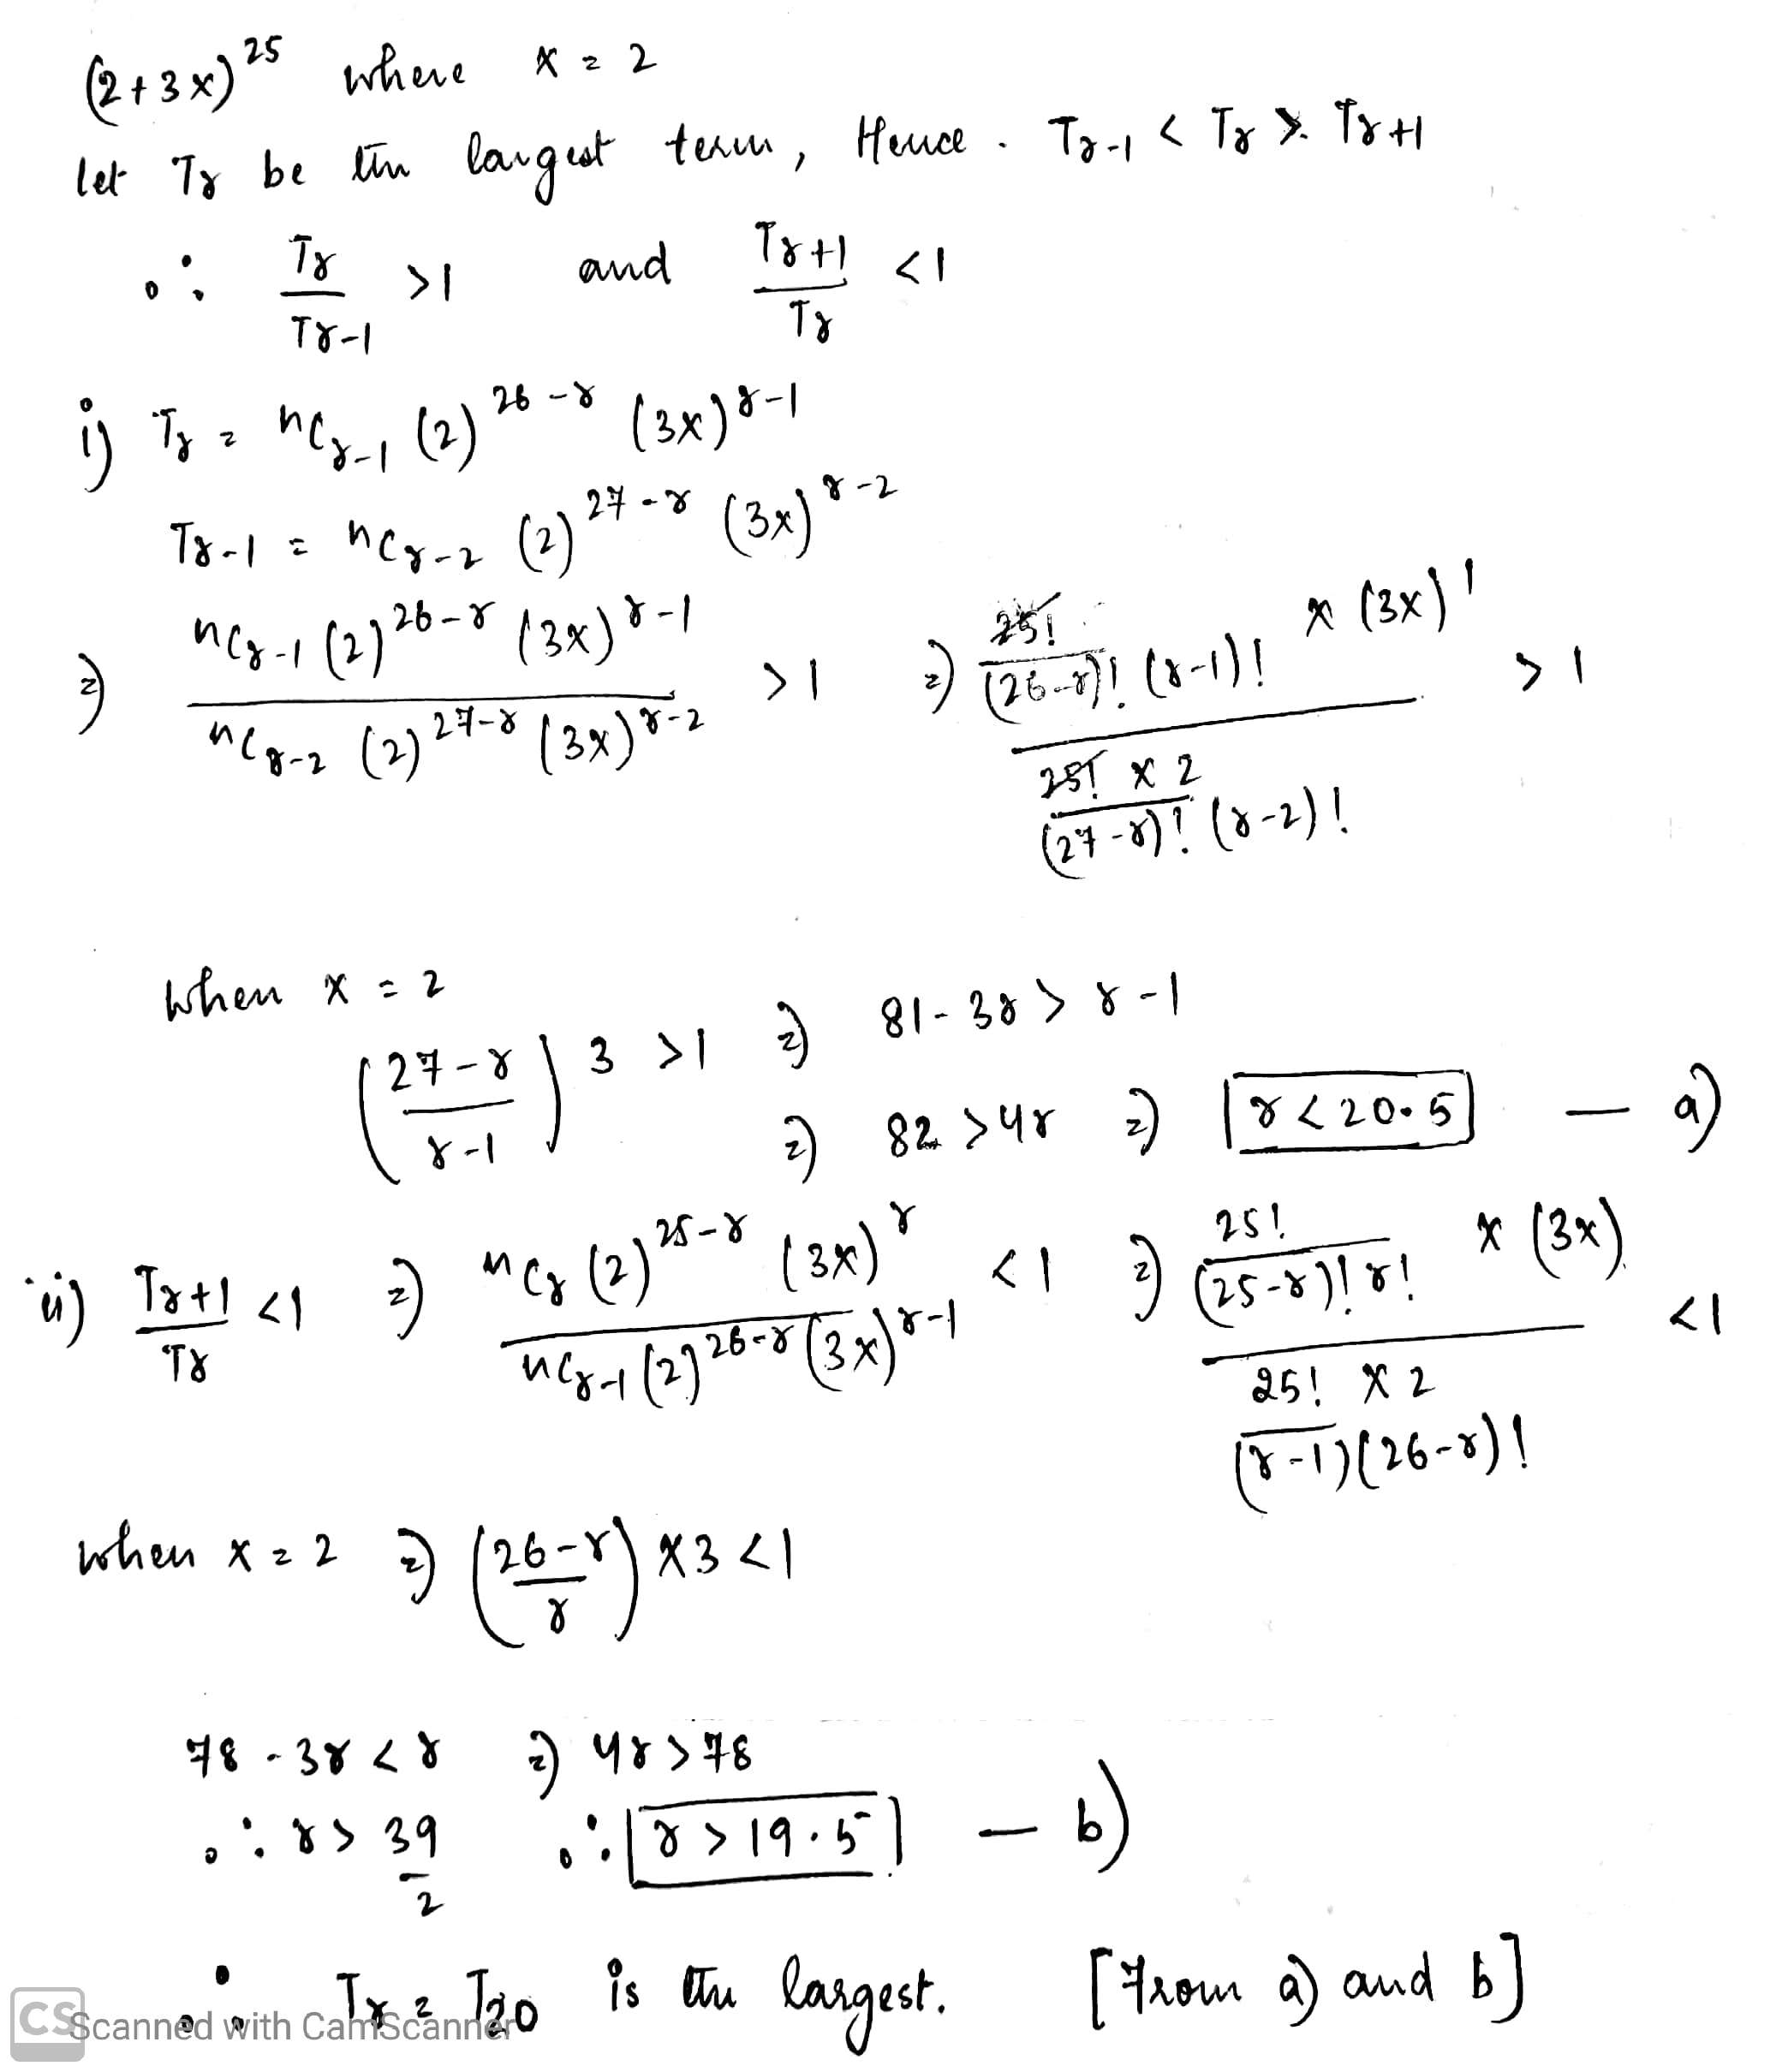 (2+3x)^25 where x = 2
let Tr be the largest term, Hence. Tr-1 < Tr > Tr+1
∴ Tr/Tr-1 >1 and Tr+1/Tr <1
i) Tr = nCr-1 (2)^26-r (3x)^r-1
Tr-1 = nCr-2 (2)^27-r (3x)^r-2
⇒ nCr-1 (2)^26-r (3x)^r-1 / nCr-2 (2)^27-r (3x)^r-2 >1 ⇒ 25!/(26-r)! (r-1)! × (3x)^1 / 25! × 2/(27-r)! (r-2)! >1
when x = 2
(27-r/r-1) 3 >1 ⇒ 81-3r > r-1
⇒ 82 >4r ⇒ r < 20.5 — a)
ii) Tr+1/Tr <1 ⇒ nCr (2)^25-r (3x)^r / nCr-1 (2)^26-r (3x)^r-1 <1 ⇒ 25!/(25-r)! r! × (3x) / 25! × 2/(r-1)(26-r)! <1
when x = 2 ⇒ (26-r/r) ×3 <1
78 - 3r < r ⇒ 4r > 78
∴ r > 39/2 ∴ r > 19.5 — b)
∴ Tr = T20 is the largest. [From a) and b]
CS Scanned with CamScanner